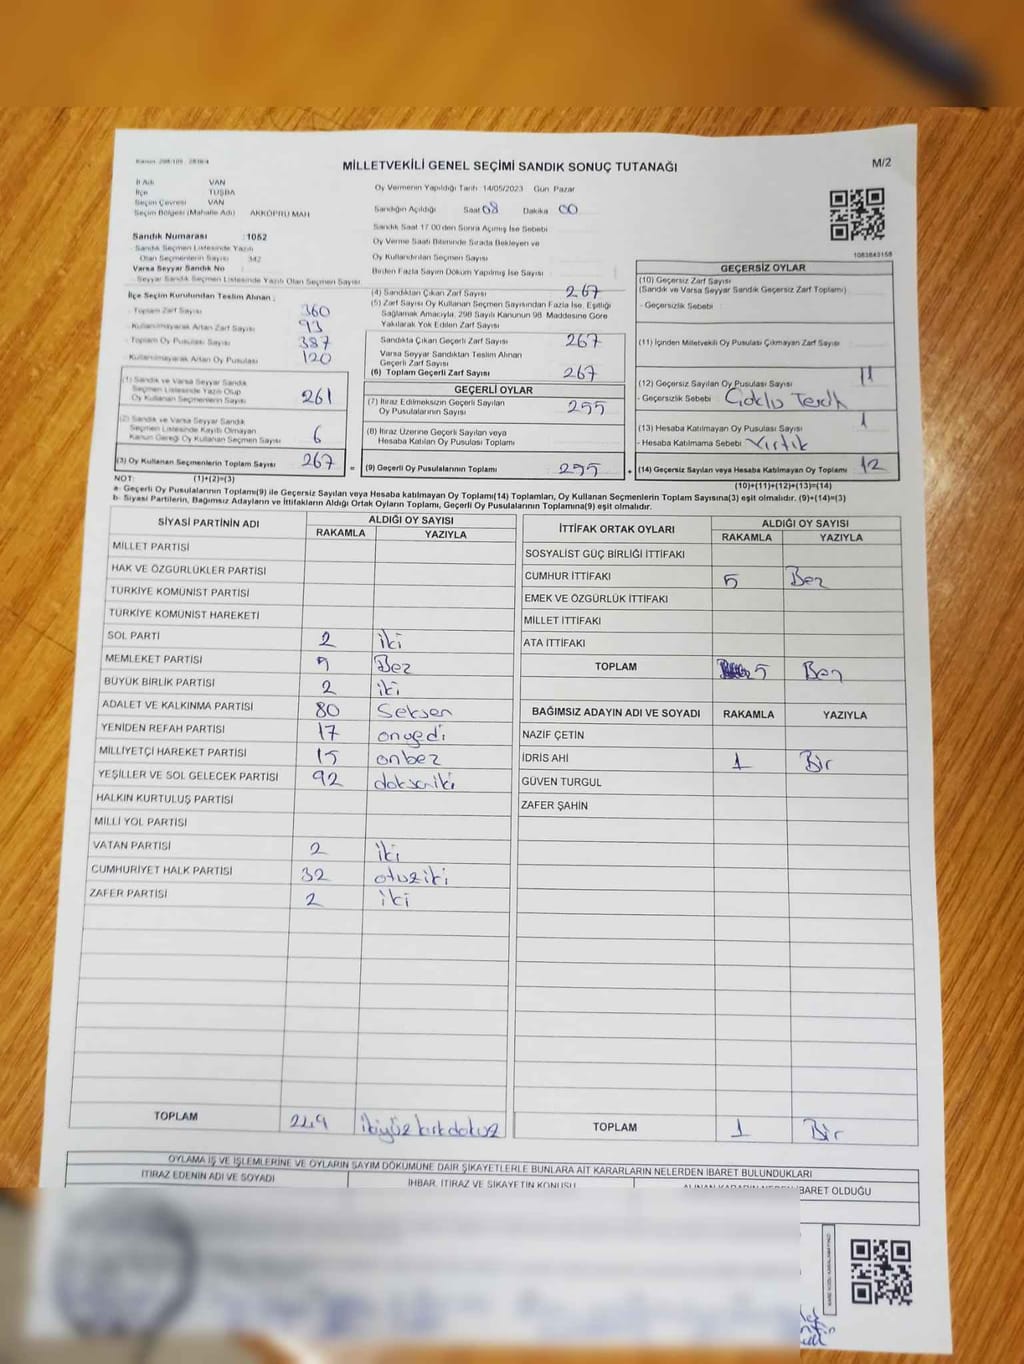 MİLLETVEKİLİ GENEL SEÇİMİ SANDIK SONUÇ TUTANAĞI
M/2
İl Adı VAN
İlçe TUŞBA
Seçim Çevresi VAN
Seçim Bölgesi (Mahalle Adı) AKKÖPRÜ MAH
Sandık Numarası : 1052
Sandık Seçmen Listesinde Yazılı
Olan Seçmenlerin Sayısı 342
Varsa Seyyar Sandık No
Seyyar Sandık Seçmen Listesinde Yazılı Olan Seçmen Sayısı
Oy Vermenin Yapıldığı Tarih 14/05/2023 Gün Pazar
Sandığın Açıldığı Saat 08 Dakika 00
Sandık Saat 17.00'den Sonra Açılmış İse Sebebi
Oy Verme Saati Bitiminde Sırada Bekleyen ve
Oy Kullandırılan Seçmen Sayısı
Birden Fazla Sayım Döküm Yapılmış İse Sayısı
1083843158
İlçe Seçim Kurulundan Teslim Alınan :
- Toplam Zarf Sayısı 360
- Kullanılmayarak Artan Zarf Sayısı 93
- Toplam Oy Pusulası Sayısı 387
- Kullanılmayarak Artan Oy Pusulası 120
(1) Sandık ve Varsa Seyyar Sandık
Seçmen Listesinde Yazılı Olup
Oy Kullanan Seçmenlerin Sayısı 261
(2) Sandık ve Varsa Seyyar Sandık
Seçmen Listesinde Kayıtlı Olmayan
Kanun Gereği Oy Kullanan Seçmen Sayısı 6
(3) Oy Kullanan Seçmenlerin Toplam Sayısı 267
(4) Sandıktan Çıkan Zarf Sayısı 267
(5) Zarf Sayısı Oy Kullanan Seçmen Sayısından Fazla İse, Eşitliği
Sağlamak Amacıyla, 298 Sayılı Kanunun 98. Maddesine Göre
Yakılarak Yok Edilen Zarf Sayısı
Sandıkta Çıkan Geçerli Zarf Sayısı 267
Varsa Seyyar Sandıktan Teslim Alınan
Geçerli Zarf Sayısı
(6) Toplam Geçerli Zarf Sayısı 267
GEÇERLİ OYLAR
(7) İtiraz Edilmeksizin Geçerli Sayılan
Oy Pusulalarının Sayısı 255
(8) İtiraz Üzerine Geçerli Sayılan veya
Hesaba Katılan Oy Pusulası Toplamı
= (9) Geçerli Oy Pusulalarının Toplamı 255
GEÇERSİZ OYLAR
(10) Geçersiz Zarf Sayısı
(Sandık ve Varsa Seyyar Sandık Geçersiz Zarf Toplamı)
- Geçersizlik Sebebi
(11) İçinden Milletvekili Oy Pusulası Çıkmayan Zarf Sayısı
(12) Geçersiz Sayılan Oy Pusulası Sayısı 11
- Geçersizlik Sebebi Çoklu Tercih
(13) Hesaba Katılmayan Oy Pusulası Sayısı 1
- Hesaba Katılmama Sebebi Yırtık
+ (14) Geçersiz Sayılan veya Hesaba Katılmayan Oy Toplamı 12
NOT: (1)+(2)=(3)
(10)+(11)+(12)+(13)=(14)
a- Geçerli Oy Pusulalarının Toplamı(9) ile Geçersiz Sayılan veya Hesaba Katılmayan Oy Toplamı(14) Toplamları, Oy Kullanan Seçmenlerin Toplam Sayısına(3) eşit olmalıdır. (9)+(14)=(3)
b- Siyasi Partilerin, Bağımsız Adayların ve İttifakların Aldığı Ortak Oyların Toplamı, Geçerli Oy Pusulalarının Toplamına(9) eşit olmalıdır.
SİYASİ PARTİNİN ADI ALDIĞI OY SAYISI
RAKAMLA YAZIYLA
MİLLET PARTİSİ
HAK VE ÖZGÜRLÜKLER PARTİSİ
TÜRKİYE KOMÜNİST PARTİSİ
TÜRKİYE KOMÜNİST HAREKETİ
SOL PARTİ 2 iki
MEMLEKET PARTİSİ 5 Beş
BÜYÜK BİRLİK PARTİSİ 2 iki
ADALET VE KALKINMA PARTİSİ 80 Seksen
YENİDEN REFAH PARTİSİ 17 onyedi
MİLLİYETÇİ HAREKET PARTİSİ 15 onbeş
YEŞİLLER VE SOL GELECEK PARTİSİ 92 doksaniki
HALKIN KURTULUŞ PARTİSİ
MİLLİ YOL PARTİSİ
VATAN PARTİSİ 2 iki
CUMHURİYET HALK PARTİSİ 32 otuziki
ZAFER PARTİSİ 2 iki
TOPLAM 249 ikiyüzkırkdokuz
İTTİFAK ORTAK OYLARI ALDIĞI OY SAYISI
RAKAMLA YAZIYLA
SOSYALİST GÜÇ BİRLİĞİ İTTİFAKI
CUMHUR İTTİFAKI 5 Beş
EMEK VE ÖZGÜRLÜK İTTİFAKI
MİLLET İTTİFAKI
ATA İTTİFAKI
TOPLAM 5 Beş
BAĞIMSIZ ADAYIN ADI VE SOYADI RAKAMLA YAZIYLA
NAZİF ÇETİN
İDRİS AHİ 1 Bir
GÜVEN TURGUL
ZAFER ŞAHİN
TOPLAM 1 Bir
OYLAMA İŞ VE İŞLEMLERİNE VE OYLARIN SAYIM DÖKÜMÜNE DAİR ŞİKAYETLERLE BUNLARA AİT KARARLARIN NELERDEN İBARET BULUNDUKLARI
İTİRAZ EDENİN ADI VE SOYADI
İHBAR, İTİRAZ VE ŞİKAYETİN KONUSU
İBARET OLDUĞU